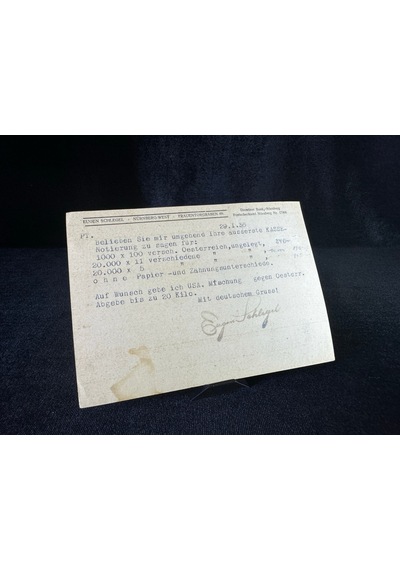 EUGEN SCHLEGEL - NÜRNBERG-WEST - FRAUENTORGRABEN
Dresdner Bank, Nürnberg
29.1.36
PT.
Belieben Sie mir umgehend ihre äusserste KASSE-
Notierung zu sagen für:
1000 x 100 versch. Oesterreich, ungelegt,
20.000 x 11 verschiedene " "
20.000 x 5 " "
o h n e Papier -und Zähnungunterschiede.
Auf Wunsch gebe ich USA. Mischung gegen Oesterr.
Abgabe bis zu 20 Kilo.
Mit deutschem Gruss!
Eugen Schlegel